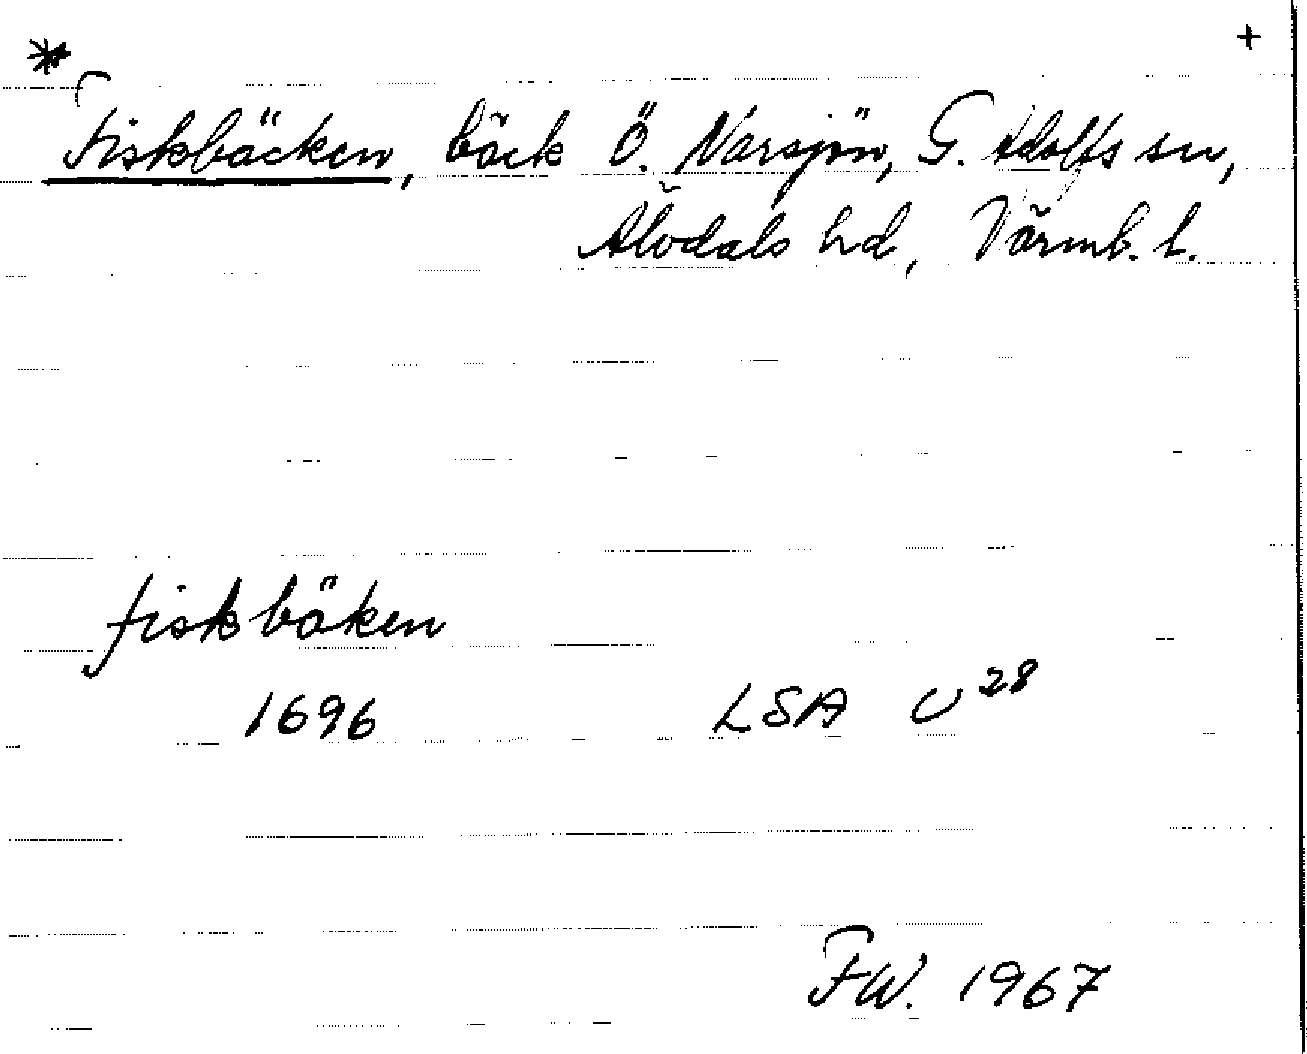 * +
Fiskbäcken, bäck Ö. Närsjön, G. Adolfs sn,
Älvdals hd, Värml. l.
fiskbäken
1696 LSA U 28
FW. 1967